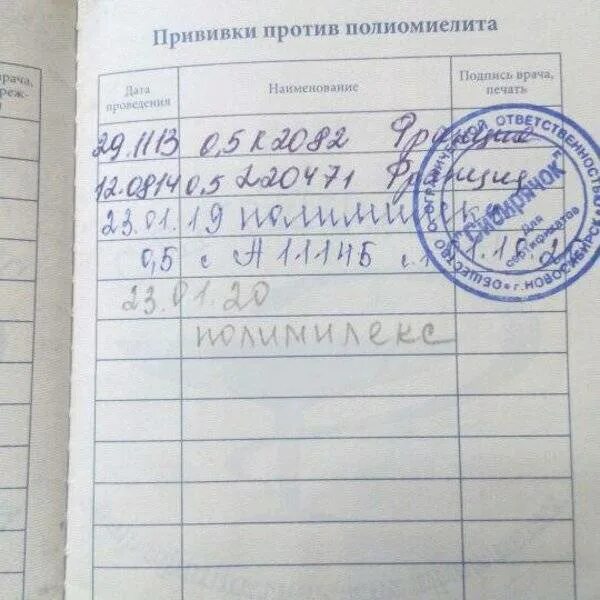 Прививки против полиомиелита
рача,
реж-
Дата проведения
Наименование
Подпись врача, печать
29.11 13 0,5 К2082 Франция
12.08 14 0,5 Франция
23.01.19 полимилекс
0,5 с А11145
23.01.20
полимилекс
ОБЩЕСТВО С ОГРАНИЧЕННОЙ ОТВЕТСТВЕННОСТЬЮ
г. НОВОСИБИРСК
"Сибирячок"
Для сертификатов